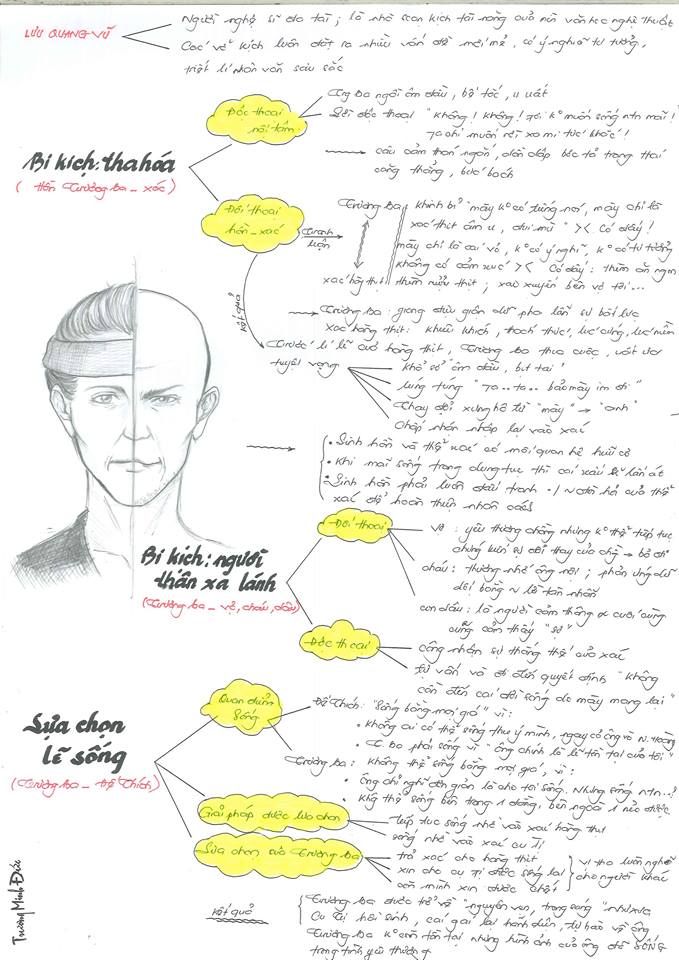 LƯU QUANG VŨ
Người nghệ sĩ đa tài ; là nhà soạn kịch tài năng của nền văn học nghệ thuật
Các vở kịch luôn đặt ra nhiều vấn đề mới mẻ, có ý nghĩa tư tưởng,
triết lí nhân văn sâu sắc
Bi kịch: tha hóa
( Hồn Trương Ba _ xác )
Độc thoại
nội tâm
Trg Ba ngồi ôm đầu, bế tắc, u uất
Lời độc thoại "Không! Không! Tôi k° muốn sống ntn mãi!
Ta chỉ muốn rời xa mi tức khắc!
câu cảm thán ngắn, dồn dập bộc lộ trạng thái
căng thẳng, bức bách
Đối thoại
hồn _ xác
Tranh
luận
Trương Ba
khinh bỉ "mày k° có tiếng nói, mày chỉ là
xác thịt âm u, đui mù" >< Có đấy!
mày chỉ là cái vỏ, k° có ý nghĩ, k° có tư tưởng
không có cảm xúc >< Có đấy : thèm ăn ngon
xác hàng thịt
thèm rượu thịt ; xao xuyến bên vợ tôi...
kết quả
Trương Ba : giọng điệu giận dữ pha lẫn sự bất lực
Xác hàng thịt: khiêu khích, thách thức, lúc cứng, lúc mềm
Trước lí lẽ của hàng thịt, Trương Ba thua cuộc, vất vả
tuyệt vọng
khổ sở ôm đầu, bịt tai!
lúng túng "Ta.. ta.. bảo mày im đi"
Thay đổi xưng hô từ "mày" → "anh"
Chấp nhận nhập lại vào xác
• Linh hồn và thể xác có mối quan hệ hữu cơ
• Khi mãi sống trong dung tục thì cái xấu sẽ lấn át
• Linh hồn phải luôn đấu tranh đòi hỏi của thể
xác để hoàn thiện nhân cách
Bi kịch: người
thân xa lánh
(Trương Ba _ vợ, cháu, dâu)
Đối thoại
Vợ : yêu thương chồng nhưng k° thể tiếp tục
chứng kiến sự đổi thay của chồng → bỏ đi
cháu : thương nhớ ông nội ; phản ứng dữ
dội bằng lời lẽ tàn nhẫn
con dâu : là người cảm thông cuối cùng
cũng cảm thấy "sợ"
Độc thoại
công nhận sự thắng thế của xác
tự vấn và đi đến quyết định "không
cần đến cái đời sống do mày mang lại"
Lựa chọn
lẽ sống
(Trương Ba _ Đế Thích)
Quan điểm
sống
Đế Thích: "sống bằng mọi giá" vì:
• Không ai có thể sống theo ý mình, ngay cả ông và N. Hoàng
• T. Ba phải sống vì "ông chính là lẽ tồn tại của tôi"
Trương Ba : không thể sống bằng mọi giá, vì :
• Ông chỉ nghĩ đơn giản là cho tôi sống. Nhưng sống ntn..?
• Khg thể sống bên trong 1 đằng, bên ngoài 1 nẻo được
Giải pháp được lựa chọn
tiếp tục sống nhờ vào xác hàng thịt
sống nhờ vào xác cu Tị
Lựa chọn của Trương Ba
trả xác cho hàng thịt
xin cho cu Tị được sống lại
còn mình xin được chết
vị tha luôn nghĩ
cho người khác
kết quả
Trương Ba được trở về "nguyên vẹn, trong sáng" như xưa
Cu Tị hồi sinh, cái gái lại hãnh diện, tự hào về ông
Trương Ba k° còn tồn tại nhưng hình ảnh của ông đã SỐNG
trong tình yêu thương
Trương Minh Đức